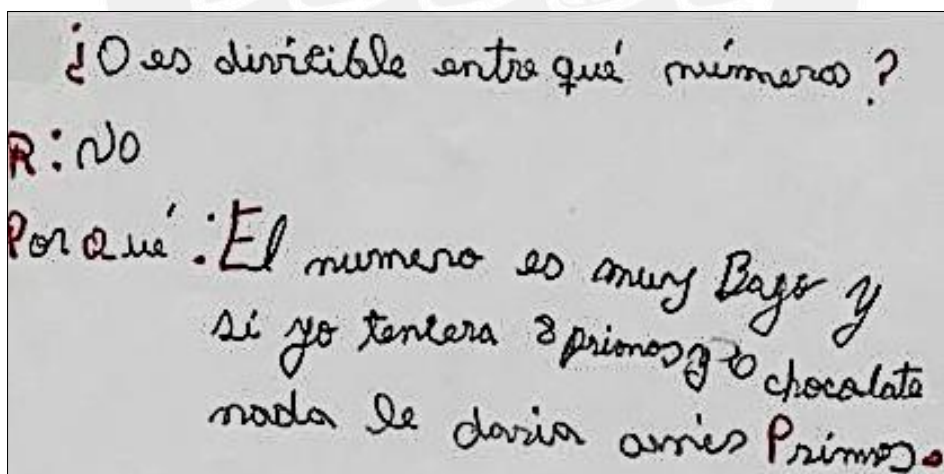 ¿0 es diviCible entre qué números?
R: NO
Por Qué: El numero es muy Bago y
si yo tencera 8 primos y 0 chocolate
nada le daria amis Primos.